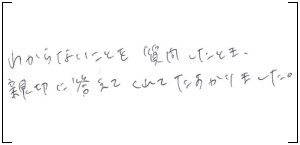 わからないことを質問したとき、
親切に答えてくれてたすかりました。